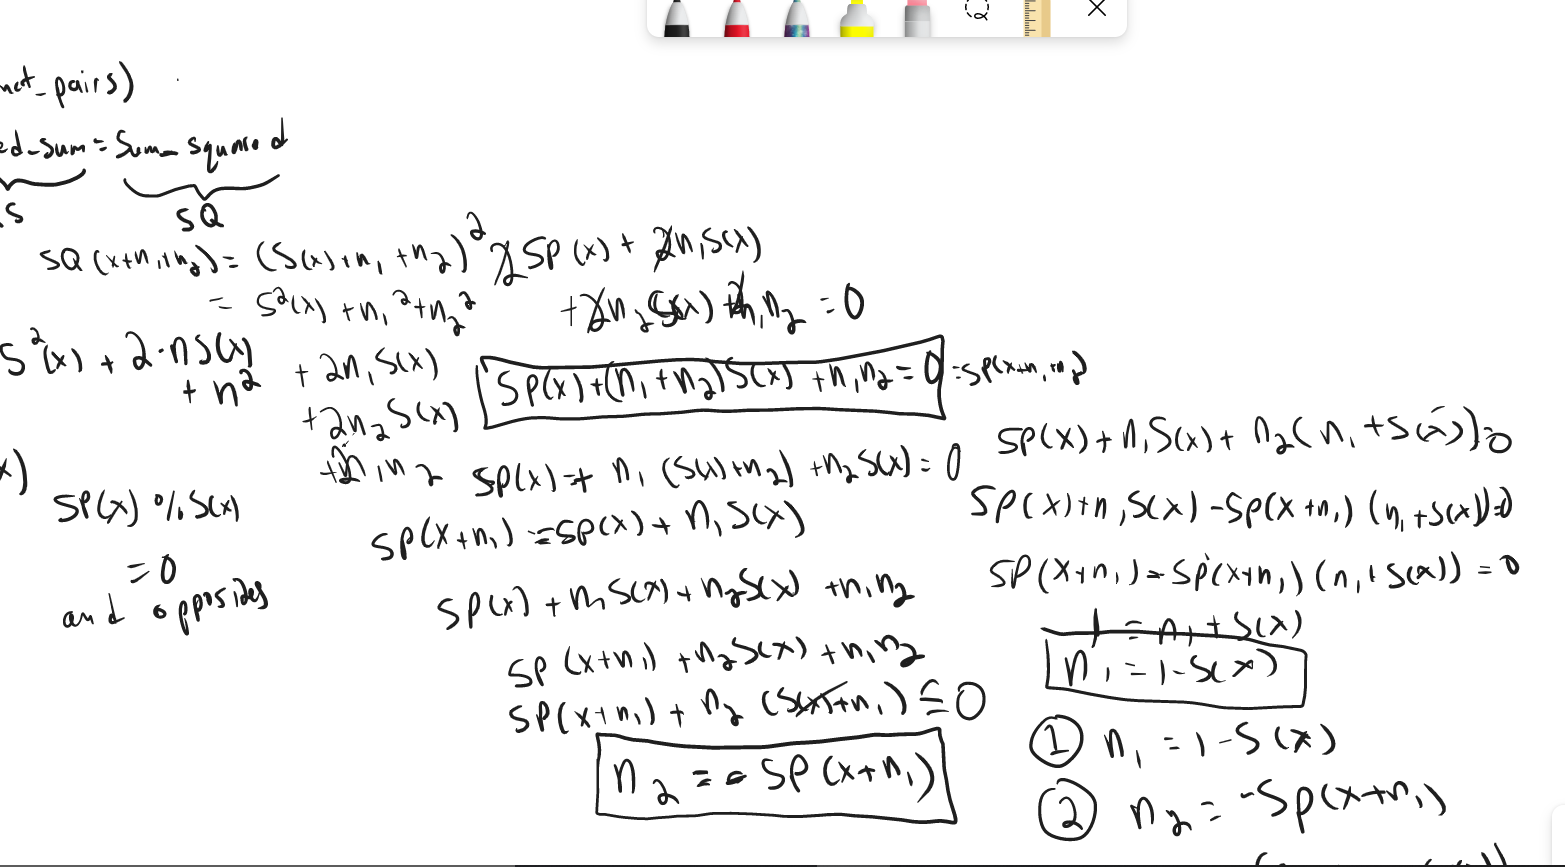 not_pairs)
ed_sum = Sum_squared
S
SQ
SQ(x+n₁+n₂) = (S(x)+n₁+n₂)²
= S²(x) + n₁² + n₂²
+ 2n₁S(x)
+ 2n₂S(x)
+ 2n₁n₂
S²(x) + 2·nS(x)
+ n²
x)
SP(x) % S(x)
= 0
and opposides
2SP(x) + 2n₁S(x)
+ 2n₂S(x) + 2n₁n₂ = 0
SP(x)+(n₁+n₂)S(x) + n₁n₂ = 0 = SP(x+n₁+n₂)
SP(x) + n₁(S(x)+n₂) + n₂S(x) = 0
SP(x+n₁) = SP(x) + n₁S(x)
SP(x) + n₁S(x) + n₂S(x) + n₁n₂
SP(x+n₁) + n₂S(x) + n₁n₂
SP(x+n₁) + n₂(S(x)+n₁) = 0
n₂ = -SP(x+n₁)
SP(x) + n₁S(x) + n₂(n₁ + S(x)) = 0
SP(x)+n₁S(x) - SP(x+n₁)(n₁+S(x)) = 0
SP(x+n₁) - SP(x+n₁)(n₁+S(x)) = 0
1 = n₁ + S(x)
n₁ = 1-S(x)
① n₁ = 1-S(x)
② n₂ = -SP(x+n₁)